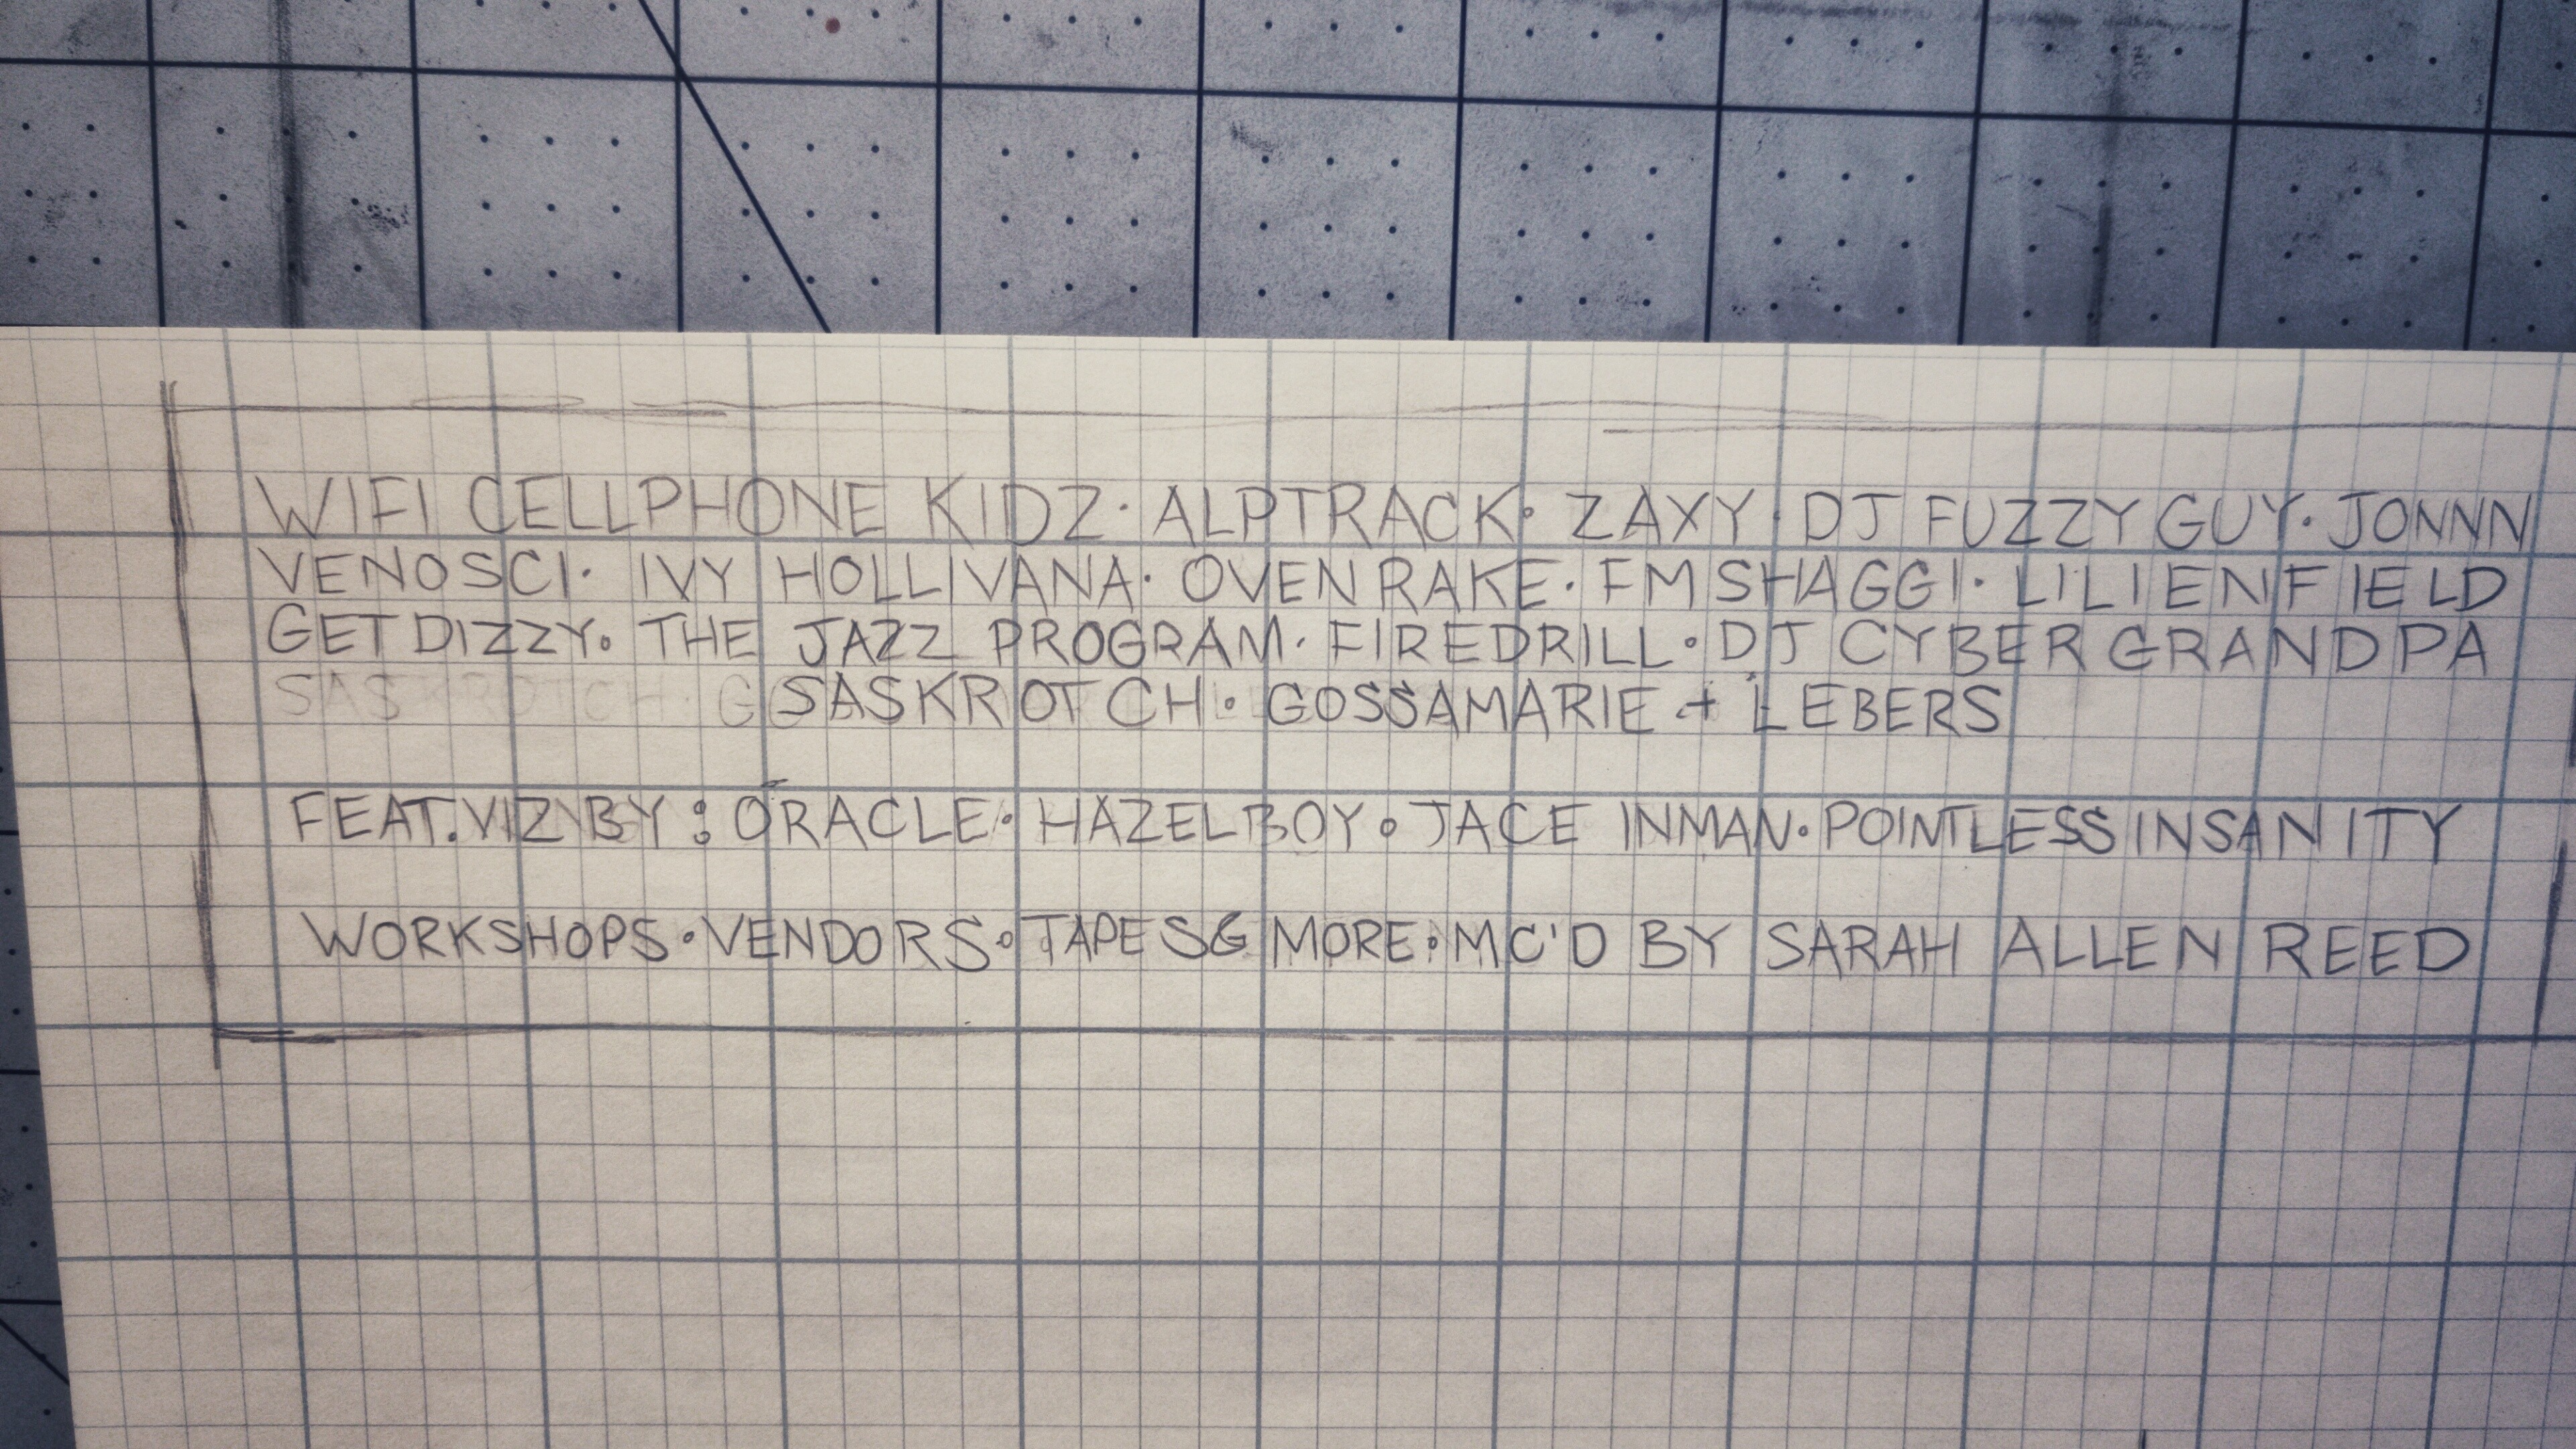 WIFI CELLPHONE KIDZ · ALPTRACK · ZAXY · DJ FUZZY GUY · JONNN
VENOSCI · IVY HOLLIVANA · OVEN RAKE · FM SHAGGI · LILIENFIELD
GET DIZZY · THE JAZZ PROGRAM · FIREDRILL · DJ CYBER GRANDPA
SASKROTCH · GOSSAMARIE + LEBERS
FEAT. VIZ BY : ORACLE · HAZELBOY · JACE INMAN · POINTLESS INSANITY
WORKSHOPS · VENDORS · TAPES & MORE · MC'D BY SARAH ALLEN REED